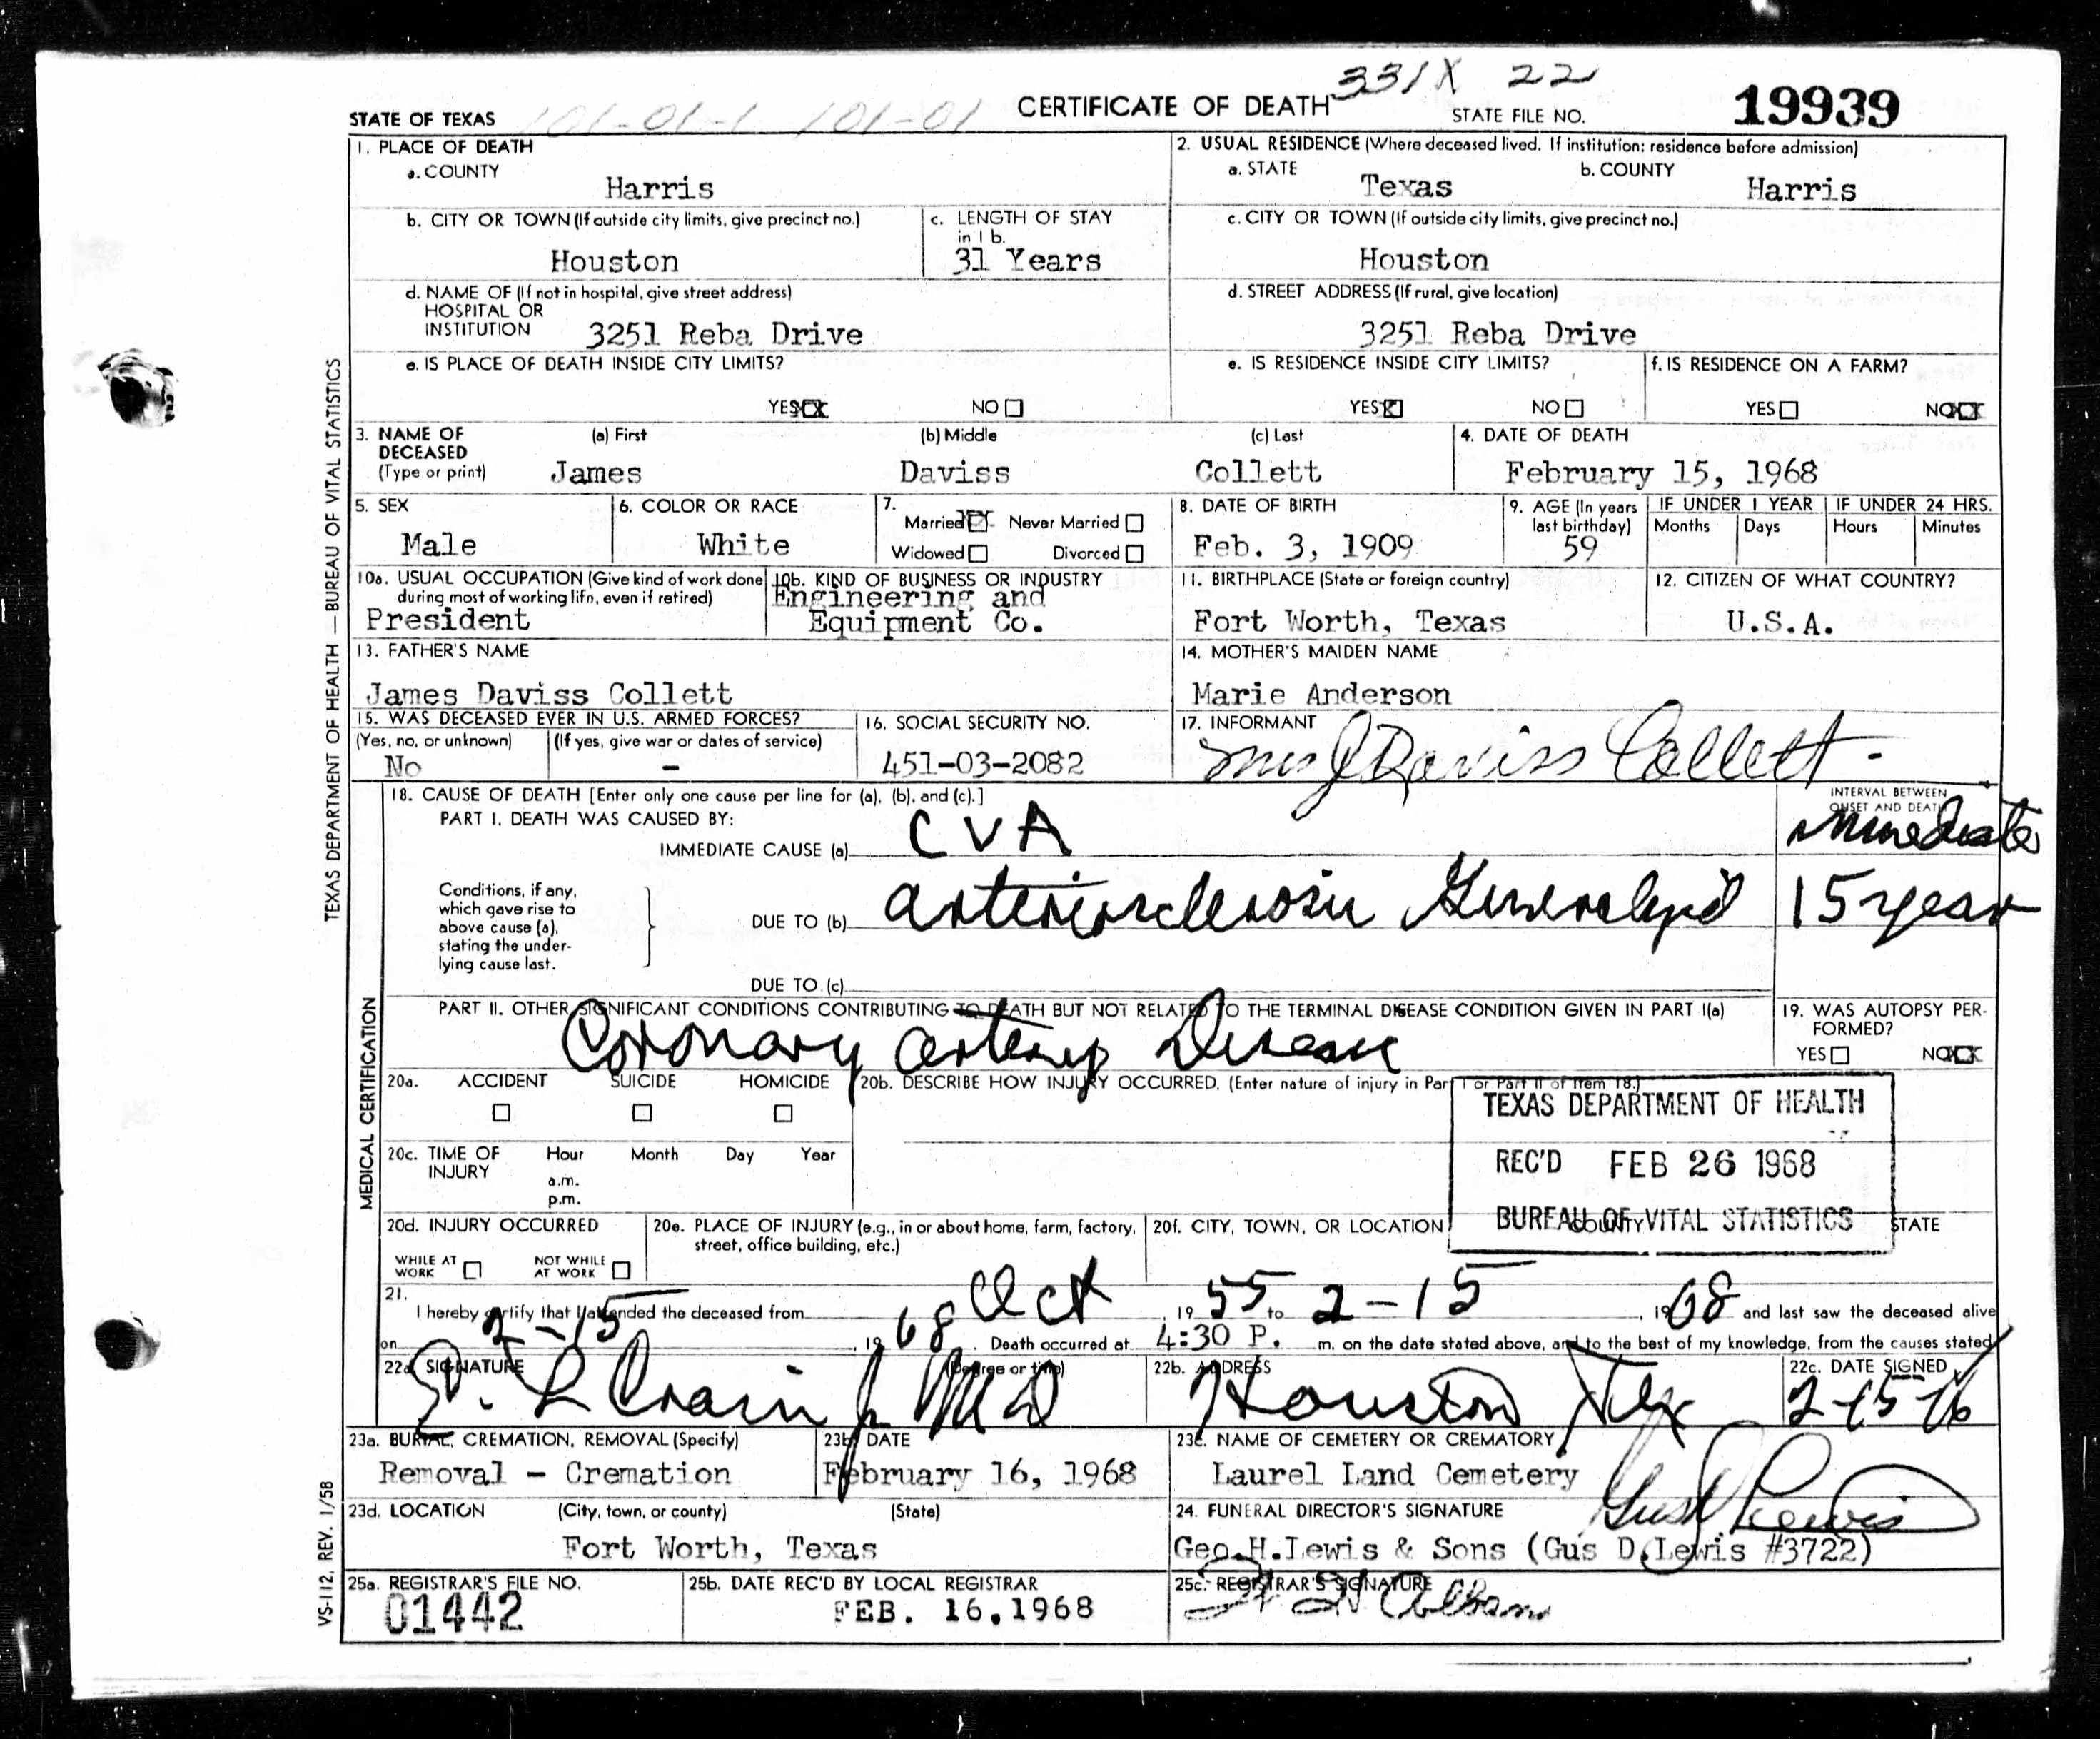 331X 22
STATE OF TEXAS 101-01-1 101-01 CERTIFICATE OF DEATH STATE FILE NO. 19939
1. PLACE OF DEATH
a. COUNTY
Harris
2. USUAL RESIDENCE (Where deceased lived. If institution: residence before admission)
a. STATE Texas b. COUNTY Harris
b. CITY OR TOWN (If outside city limits, give precinct no.)
Houston
c. LENGTH OF STAY
in 1 b.
31 Years
c. CITY OR TOWN (If outside city limits, give precinct no.)
Houston
d. NAME OF (If not in hospital, give street address)
HOSPITAL OR
INSTITUTION 3251 Reba Drive
d. STREET ADDRESS (If rural, give location)
3251 Reba Drive
e. IS PLACE OF DEATH INSIDE CITY LIMITS?
YES XX NO
e. IS RESIDENCE INSIDE CITY LIMITS?
YES X NO
f. IS RESIDENCE ON A FARM?
YES NO XX
3. NAME OF (a) First (b) Middle (c) Last
DECEASED
(Type or print) James Daviss Collett
4. DATE OF DEATH
February 15, 1968
5. SEX
Male
6. COLOR OR RACE
White
7.
Married X Never Married
Widowed Divorced
8. DATE OF BIRTH
Feb. 3, 1909
9. AGE (In years
last birthday)
59
IF UNDER 1 YEAR IF UNDER 24 HRS.
Months Days Hours Minutes
10a. USUAL OCCUPATION (Give kind of work done
during most of working life, even if retired)
President
10b. KIND OF BUSINESS OR INDUSTRY
Engineering and
Equipment Co.
11. BIRTHPLACE (State or foreign country)
Fort Worth, Texas
12. CITIZEN OF WHAT COUNTRY?
U.S.A.
13. FATHER'S NAME
James Daviss Collett
14. MOTHER'S MAIDEN NAME
Marie Anderson
15. WAS DECEASED EVER IN U.S. ARMED FORCES?
(Yes, no, or unknown) (If yes, give war or dates of service)
No -
16. SOCIAL SECURITY NO.
451-03-2082
17. INFORMANT
Mrs J Daviss Collett
TEXAS DEPARTMENT OF HEALTH — BUREAU OF VITAL STATISTICS
MEDICAL CERTIFICATION
18. CAUSE OF DEATH [Enter only one cause per line for (a), (b), and (c).]
INTERVAL BETWEEN
ONSET AND DEATH
PART I. DEATH WAS CAUSED BY:
IMMEDIATE CAUSE (a) CVA immediate
Conditions, if any,
which gave rise to
above cause (a),
stating the under-
lying cause last.
DUE TO (b) arteriosclerosis Generalized 15 year
DUE TO (c)
PART II. OTHER SIGNIFICANT CONDITIONS CONTRIBUTING TO DEATH BUT NOT RELATED TO THE TERMINAL DISEASE CONDITION GIVEN IN PART I(a)
Coronary artery Disease
19. WAS AUTOPSY PER-
FORMED?
YES NO XX
20a. ACCIDENT SUICIDE HOMICIDE
20b. DESCRIBE HOW INJURY OCCURRED. (Enter nature of injury in Part I or Part II of Item 18.)
TEXAS DEPARTMENT OF HEALTH
REC'D FEB 26 1968
BUREAU OF VITAL STATISTICS
20c. TIME OF Hour Month Day Year
INJURY a.m.
p.m.
20d. INJURY OCCURRED
WHILE AT NOT WHILE
WORK AT WORK
20e. PLACE OF INJURY (e.g., in or about home, farm, factory,
street, office building, etc.)
20f. CITY, TOWN, OR LOCATION COUNTY STATE
21.
I hereby certify that I attended the deceased from Oct , 19 55 to 2-15 , 1968 and last saw the deceased alive
on 2-15 , 19 68 . Death occurred at 4:30 P. m. on the date stated above, and to the best of my knowledge, from the causes stated
22a. SIGNATURE (Degree or title)
Crain Jr MD
22b. ADDRESS
Houston Tex
22c. DATE SIGNED
23a. BURIAL, CREMATION, REMOVAL (Specify)
Removal - Cremation
23b. DATE
February 16, 1968
23c. NAME OF CEMETERY OR CREMATORY
Laurel Land Cemetery
23d. LOCATION (City, town, or county) (State)
Fort Worth, Texas
24. FUNERAL DIRECTOR'S SIGNATURE
Gus D Lewis
Geo.H.Lewis & Sons (Gus D.Lewis #3722)
25a. REGISTRAR'S FILE NO.
01442
25b. DATE REC'D BY LOCAL REGISTRAR
FEB. 16,1968
25c. REGISTRAR'S SIGNATURE
VS-112, REV. 1/58